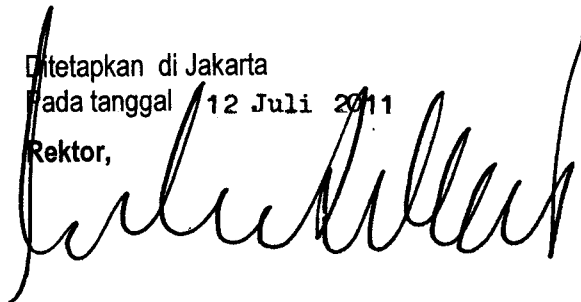 Ditetapkan di Jakarta
Pada tanggal 12 Juli 2011
Rektor,